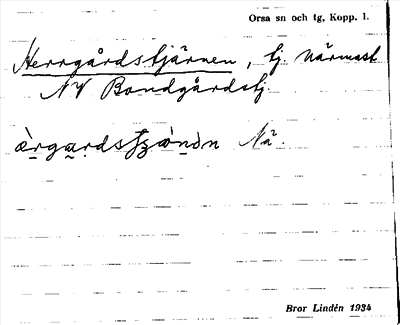 Orsa sn och tg, Kopp. l.
Herrgårdstjärnen, tj. närmast
NV Bondgårdstj.
Nä.
Bror Lindén 1934